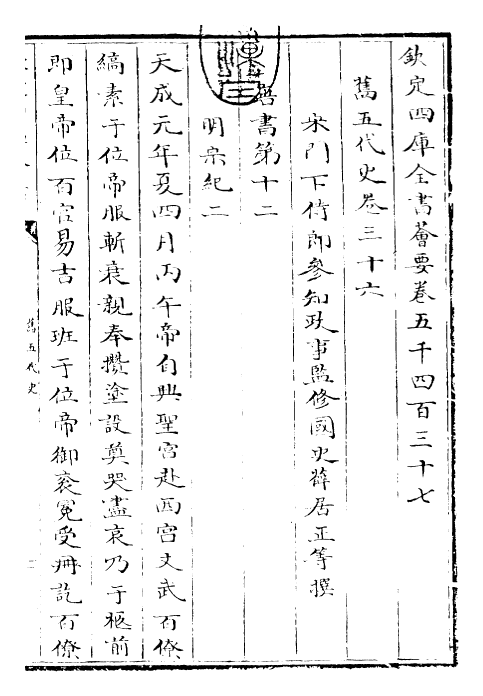 欽定四庫全書薈要卷五千四百三十七
舊五代史卷三十六
宋門下侍郎參知政事監修國史薛居正等撰
唐書第十二
明宗紀二
天成元年夏四月丙午帝自興聖宮赴西宮文武百僚
縞素于位帝服斬衰親奉攢塗設奠哭盡哀乃于柩前
即皇帝位百官易吉服班于位帝御袞冕受冊訖百僚
舊五代史